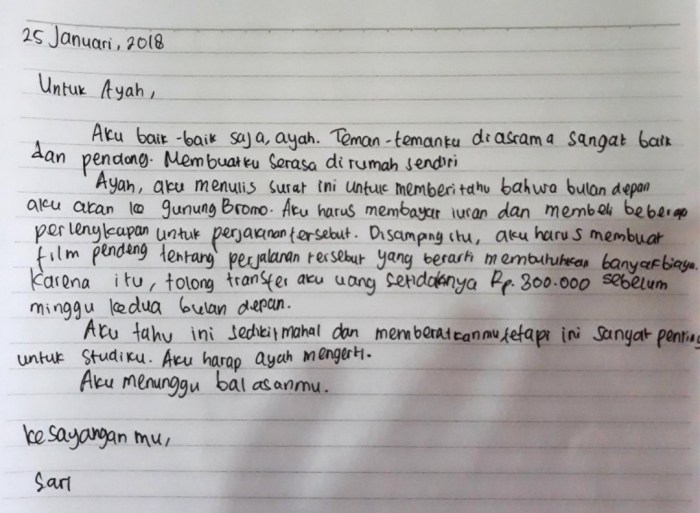 25 Januari, 2018
Untuk Ayah,
Aku baik-baik saja, ayah. Teman-temanku di asrama sangat baik
dan pendong. Membuatku serasa di rumah sendiri
Ayah, aku menulis surat ini untuk memberi tahu bahwa bulan depan
aku akan ke gunung Bromo. Aku harus membayar iuran dan membeli beberap
perlengkapan untuk perjalanan tersebut. Disamping itu, aku harus membuat
film pendeng tentang perjalanan tersebut yang berarti membutuhkan banyak biaya.
Karena itu, tolong transfer aku uang setidaknya Rp. 800.000 sebelum
minggu kedua bulan depan.
Aku tahu ini sedikit mahal dan memberatkanmu tetapi ini sangat penting
untuk studiku. Aku harap ayah mengerti.
Aku menunggu balasanmu.
kesayangan mu,
Sari